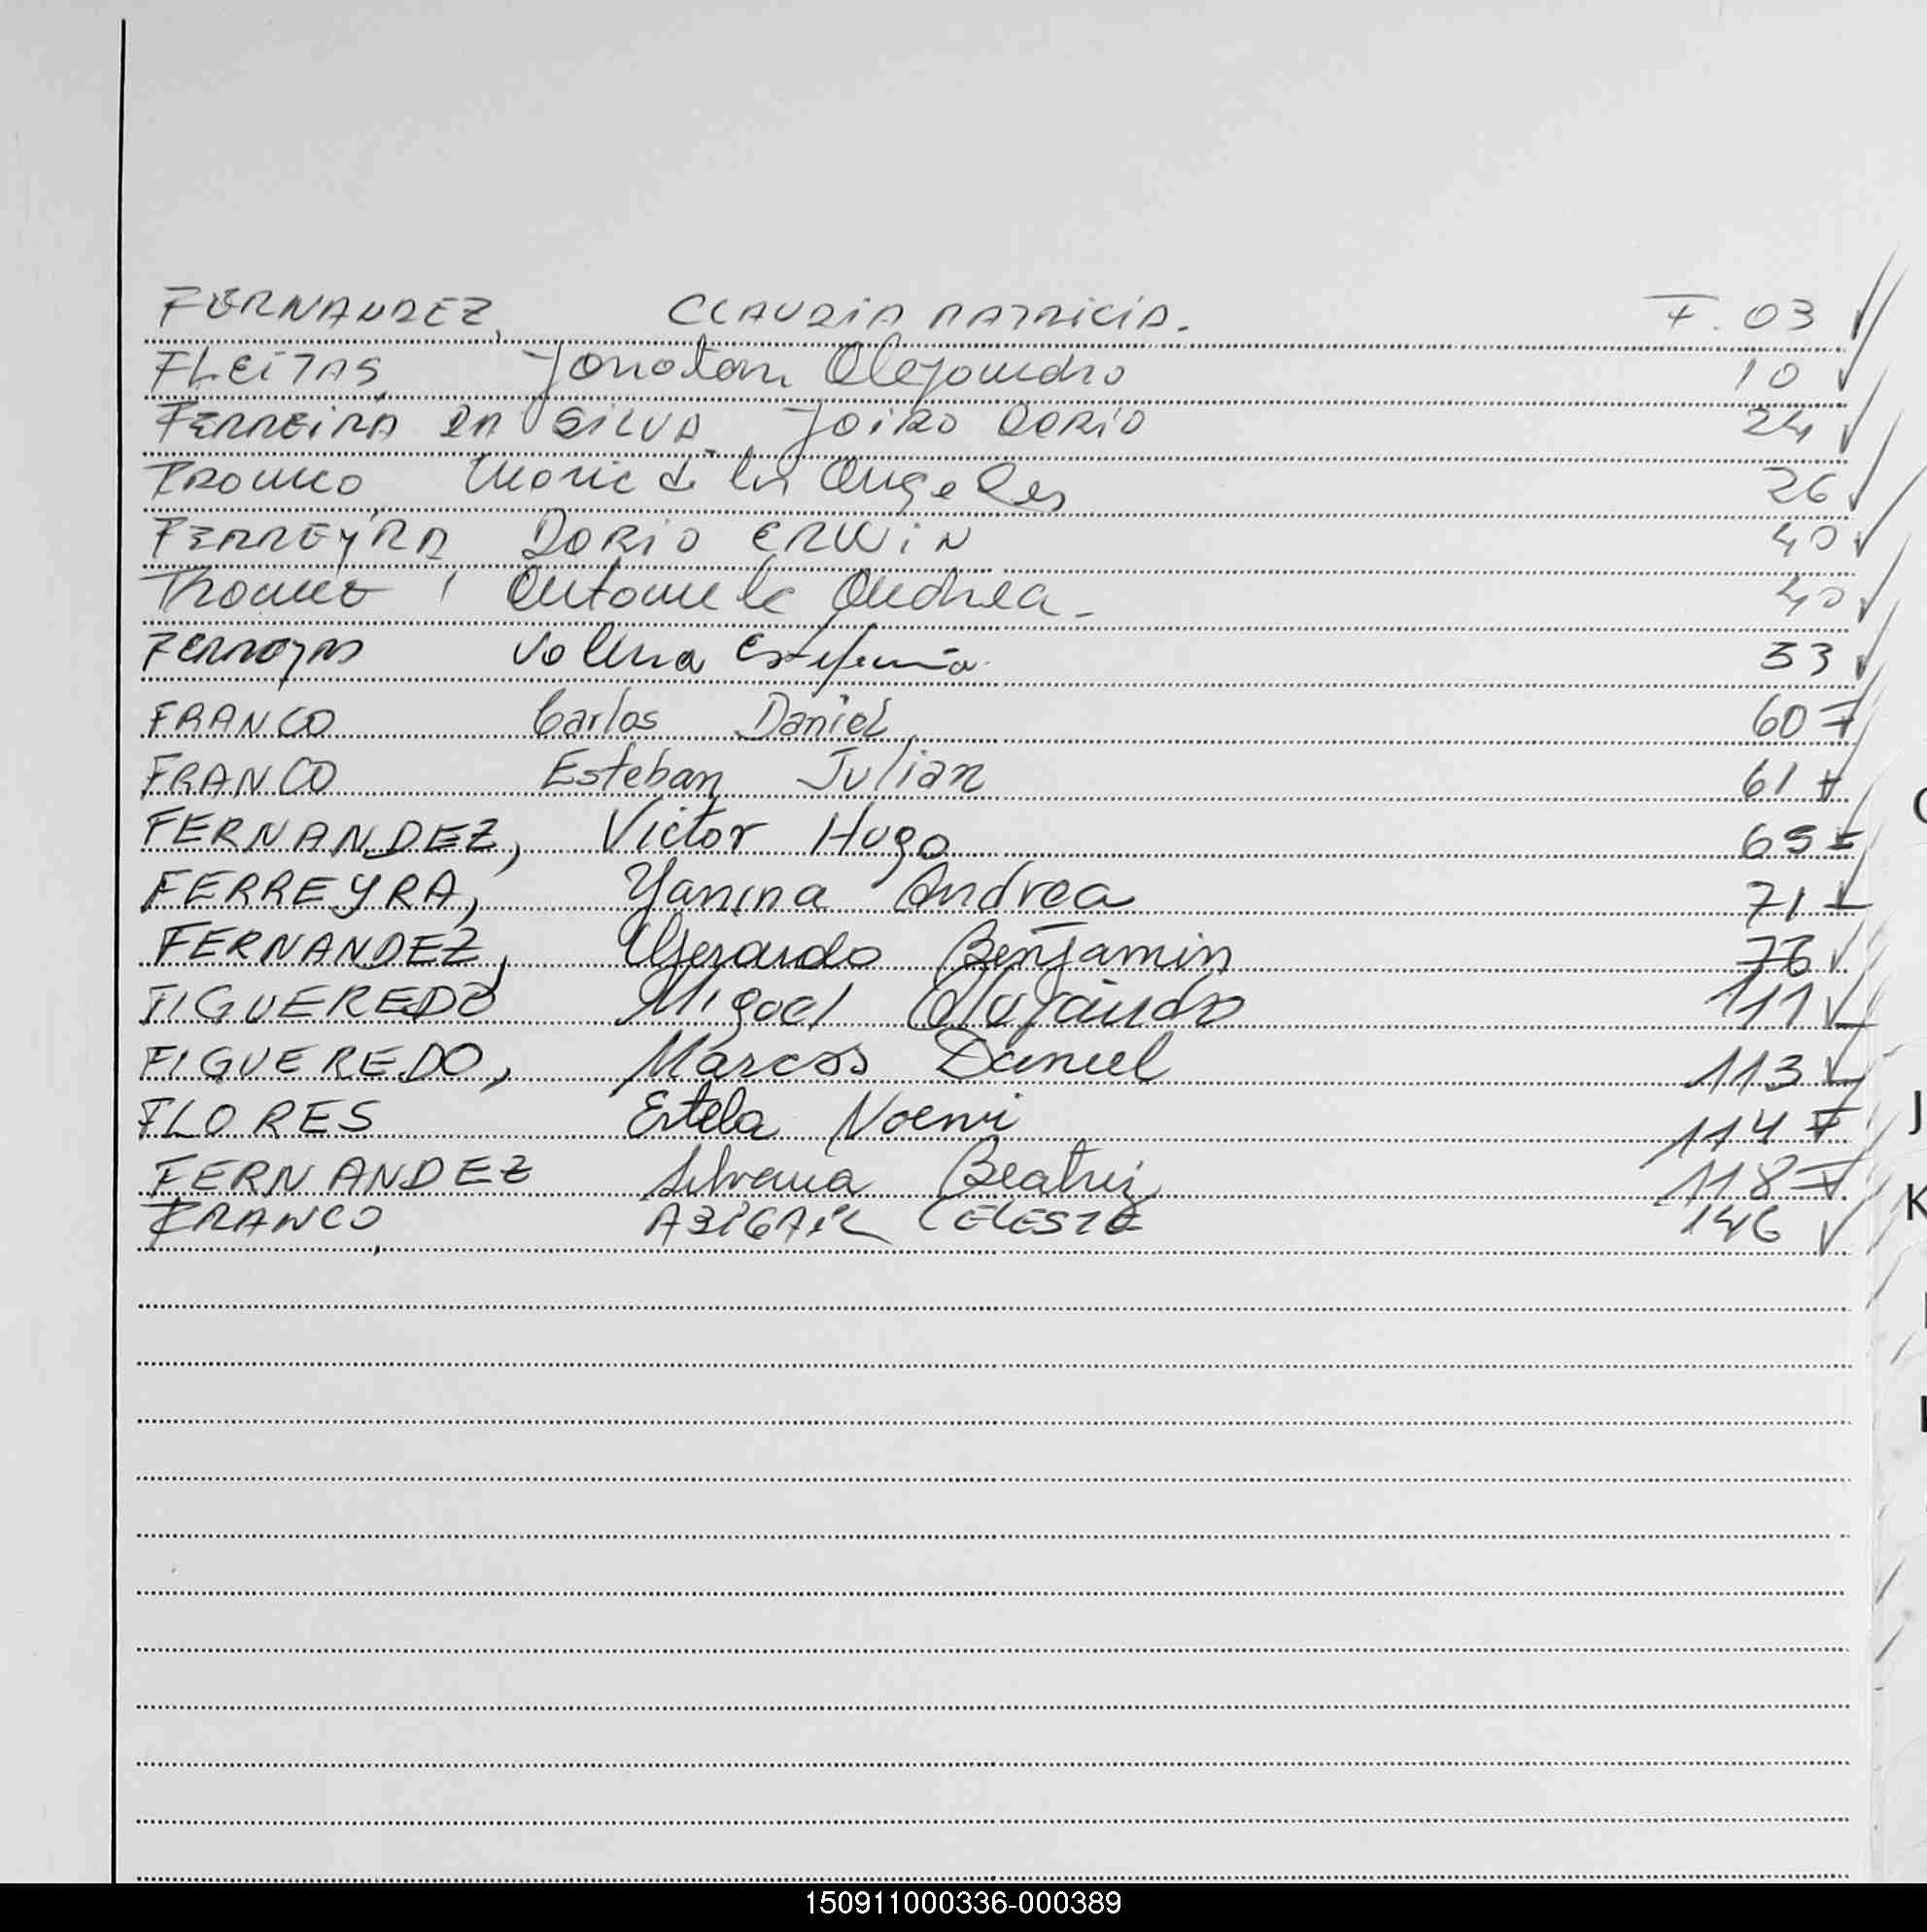 FERNANDEZ, CLAUDIA PATRICIA. F. 03
FLEITAS, Jonatan Alejandro 10
FERREIRA DA SILVA Jairo DARIO 24
Franco, Maria de los Angeles 26
FERREYRA DARIO ERWIN 40
Franco, Antonela Andrea. 40
Ferreyra Valeria Estefania 53
FRANCO Carlos Daniel 60
FRANCO Esteban Julian 61
FERNANDEZ, Victor Hugo 65
FERREYRA, Yanina Andrea 71
FERNANDEZ, Gerardo Benjamin 76
FIGUEREDO Miguel Alejandro 111
FIGUEREDO, Marcos Daniel 113
FLORES Estela Noemi 114
FERNANDEZ Silvana Beatriz 118
FRANCO, ABIGAIL CELESTE 146
J
K
150911000336-000389